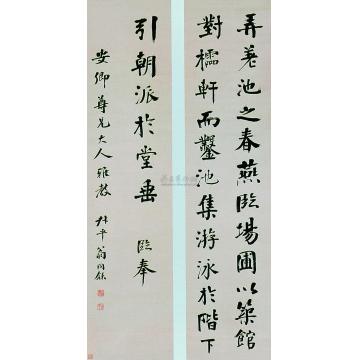 弄池之春燕臨場圃以築館
對櫺軒而鑿池集游泳於階下
引朝派於堂垂 臨奉
安卿尊兄大人雅教 叔平翁同龢